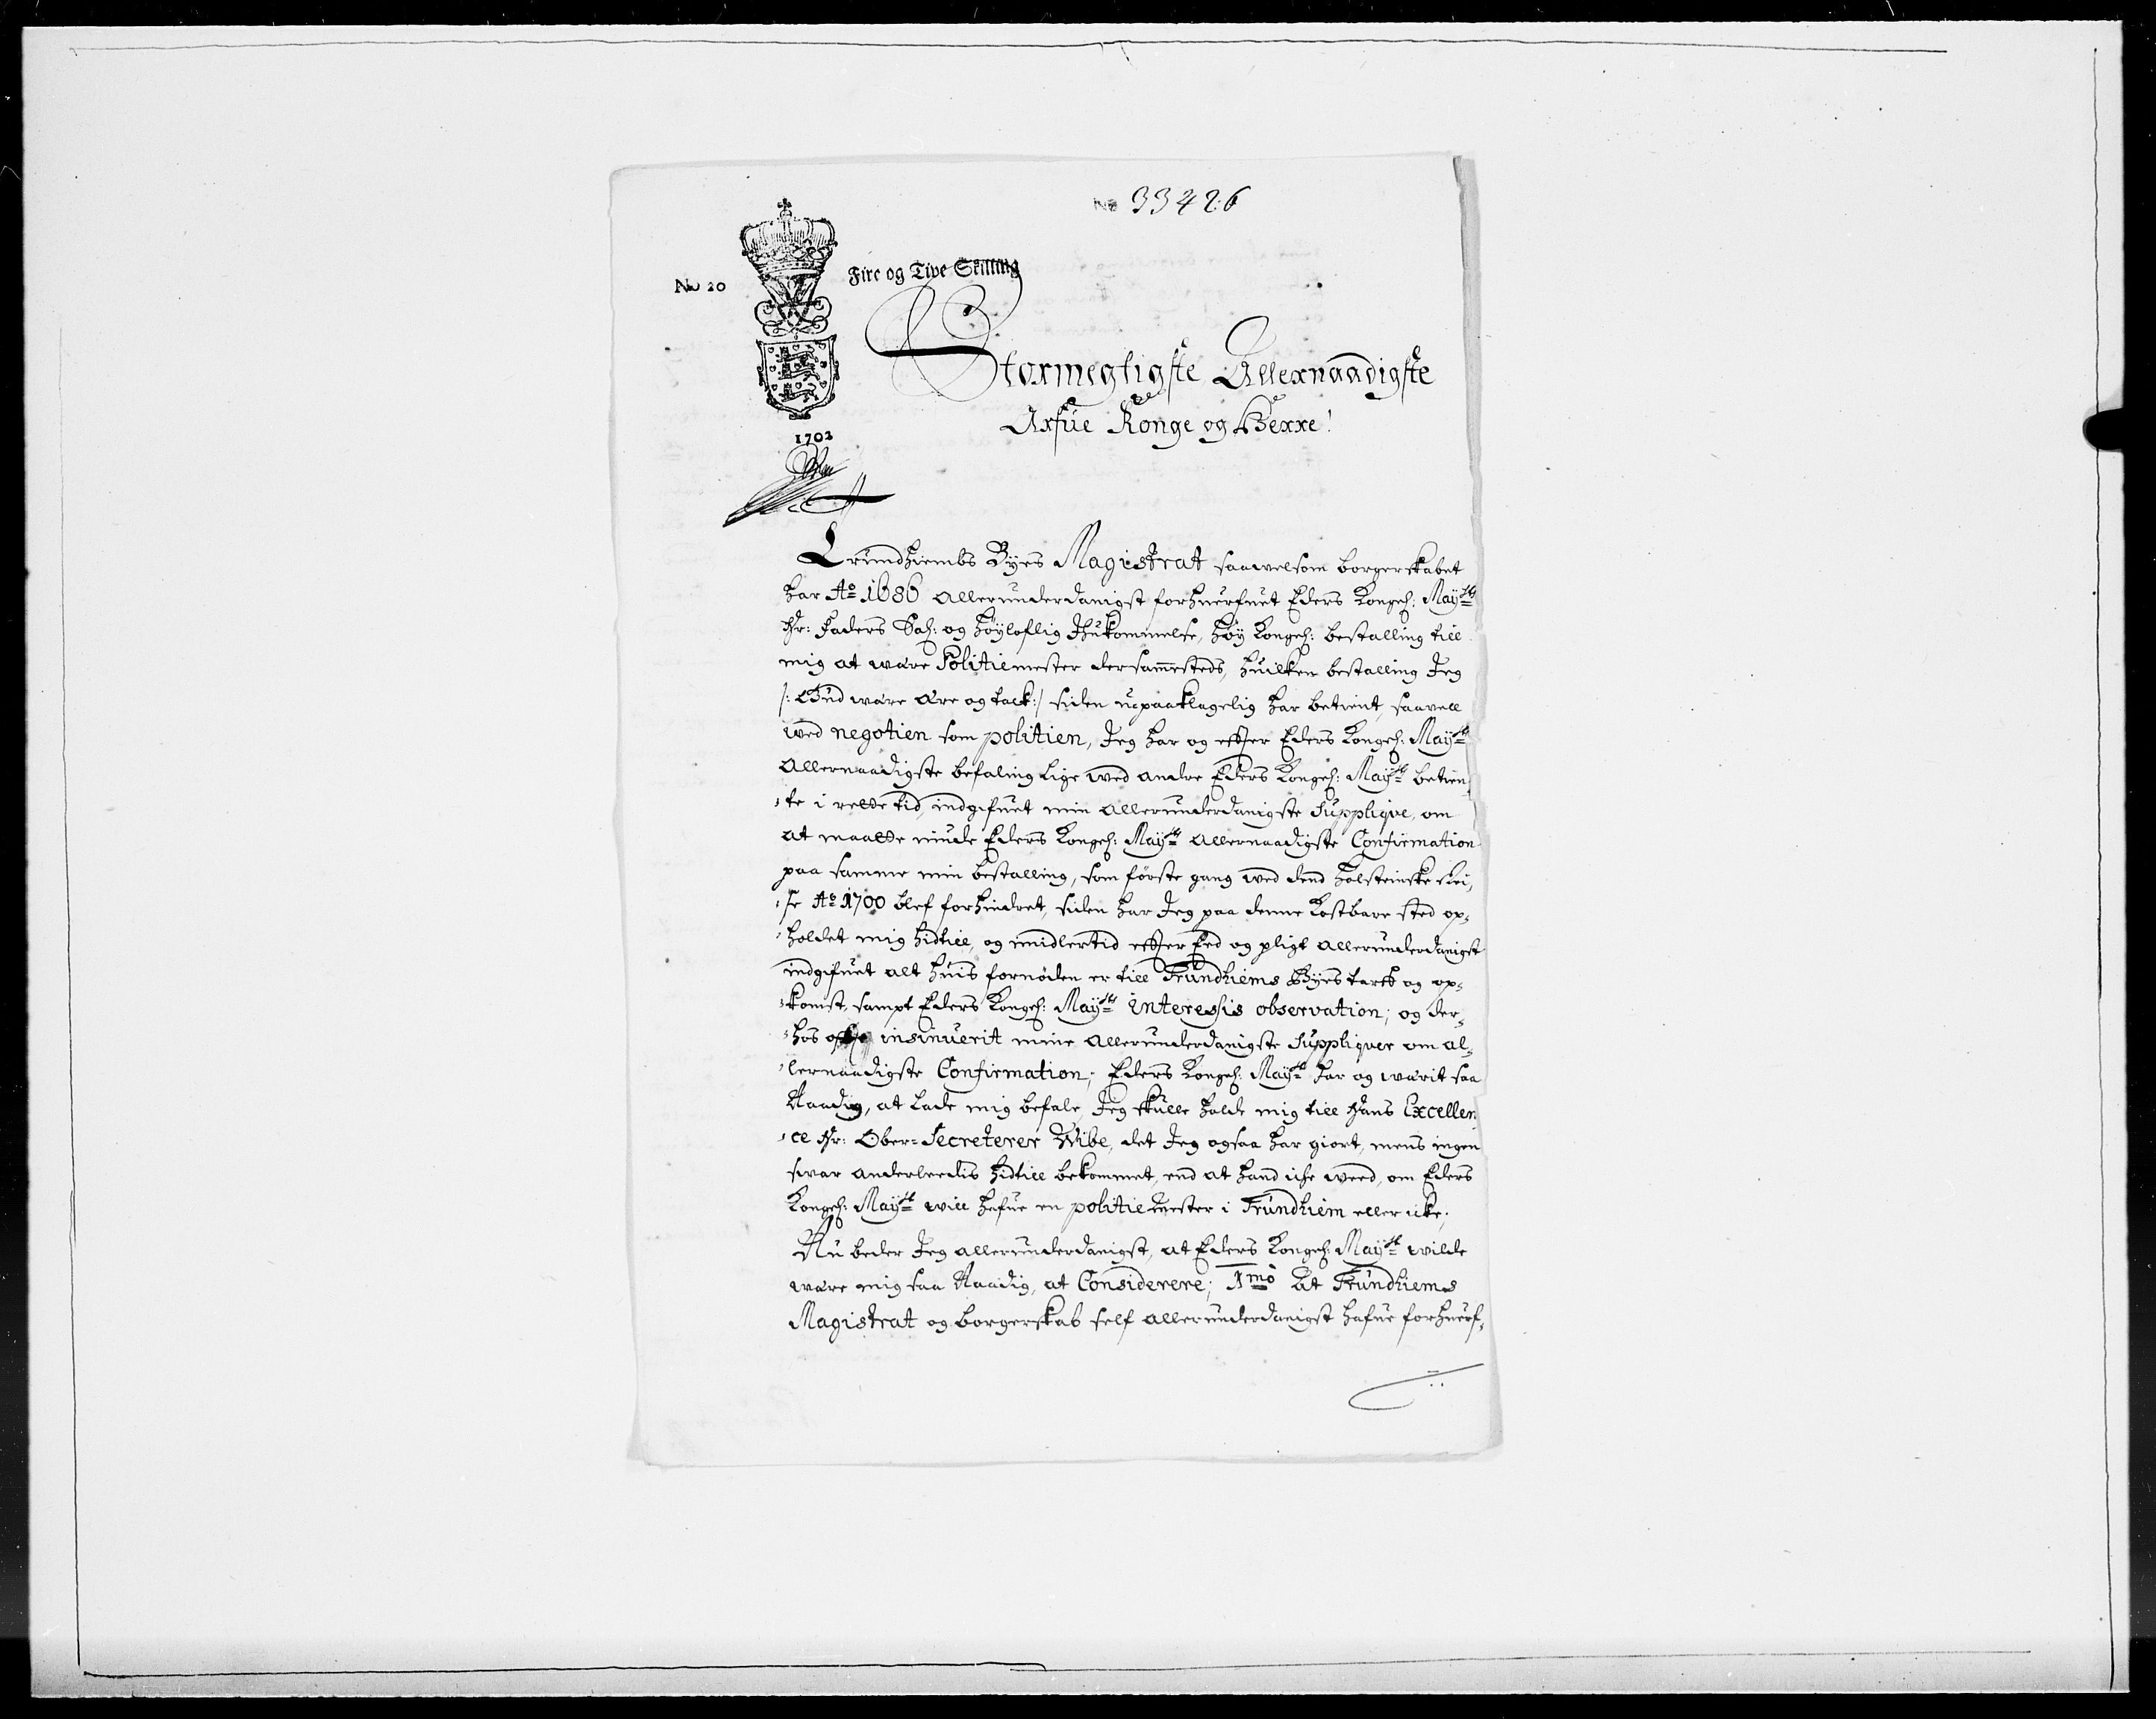 No 33426
No 20
Fire og Tive Skilling
1702
Stormegtigste Allernaadigste
Arfue Konge og Herre!
Trundhiembs Byes Magistrat saawelsom borgerskabet
har Ao 1686 allerunderdanigst forhuerfuet Eders Kongel: Mayts
Hr: Faders Sal: og høyloflig Ihukommelse, høy Kongel: bestalling till
mig at wære Politiemester dersammesteds, huilken bestalling Jeg
/: Gud wære ære og tack :/ siden upaaklagelig har betient, saavell
wed negotien som politien, Jeg har og effter Eders Kongel: Mayts
allernaadigste befaling lige wed andre Eders Kongel: Mayts betien-
te i rette tid, indgifuet min allerunderdanigste Supplique, om
at maatte niude Eders Kongel: Mayts allernaadigste Confirmation
paa samme min bestalling, som første gang wed dend holsteinske rei-
se Ao 1700 blef forhindret, siden har Jeg paa denne kostbare sted op-
holdet mig hidtill, og imidlertid effter Eed og pligt allerunderdanigst
indgifuet alt huis fornøden er till Trundhiems Byes tarf og op-
komst, sampt Eders Kongel: Mayts interessis observation; og der-
hos offte insinuerit mine allerunderdanigste Suppliquer om al-
lernaadigste Confirmation; Eders Kongel: Mayt har og wærit saa
Naadig, at lade mig befale, Jeg skulle holde mig till Hans Excellen-
ce Hr: Ober-Secreterer Wibe, det Jeg ogsaa har giort, mens ingen
swar anderleedis hidtill bekommet, end at hand icke weed, om Eders
Kongel: Mayt will hafue en politiemester i Trundhiem eller icke;
Nu beder Jeg allerunderdanigst, at Eders Kongel: Mayt wilde
wære mig saa Naadig, at Considerere; 1mo At Trundhiems
Magistrat og borgerskab self allerunderdanigst hafue forhuerf-